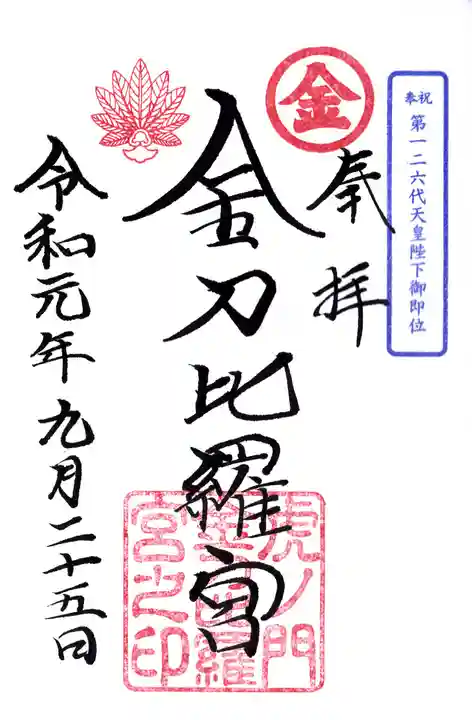 奉祝 第一二六代天皇陛下御即位
金
奉拝
金刀比羅宮
虎ノ門
金刀比羅
宮之印
令和元年九月二十五日